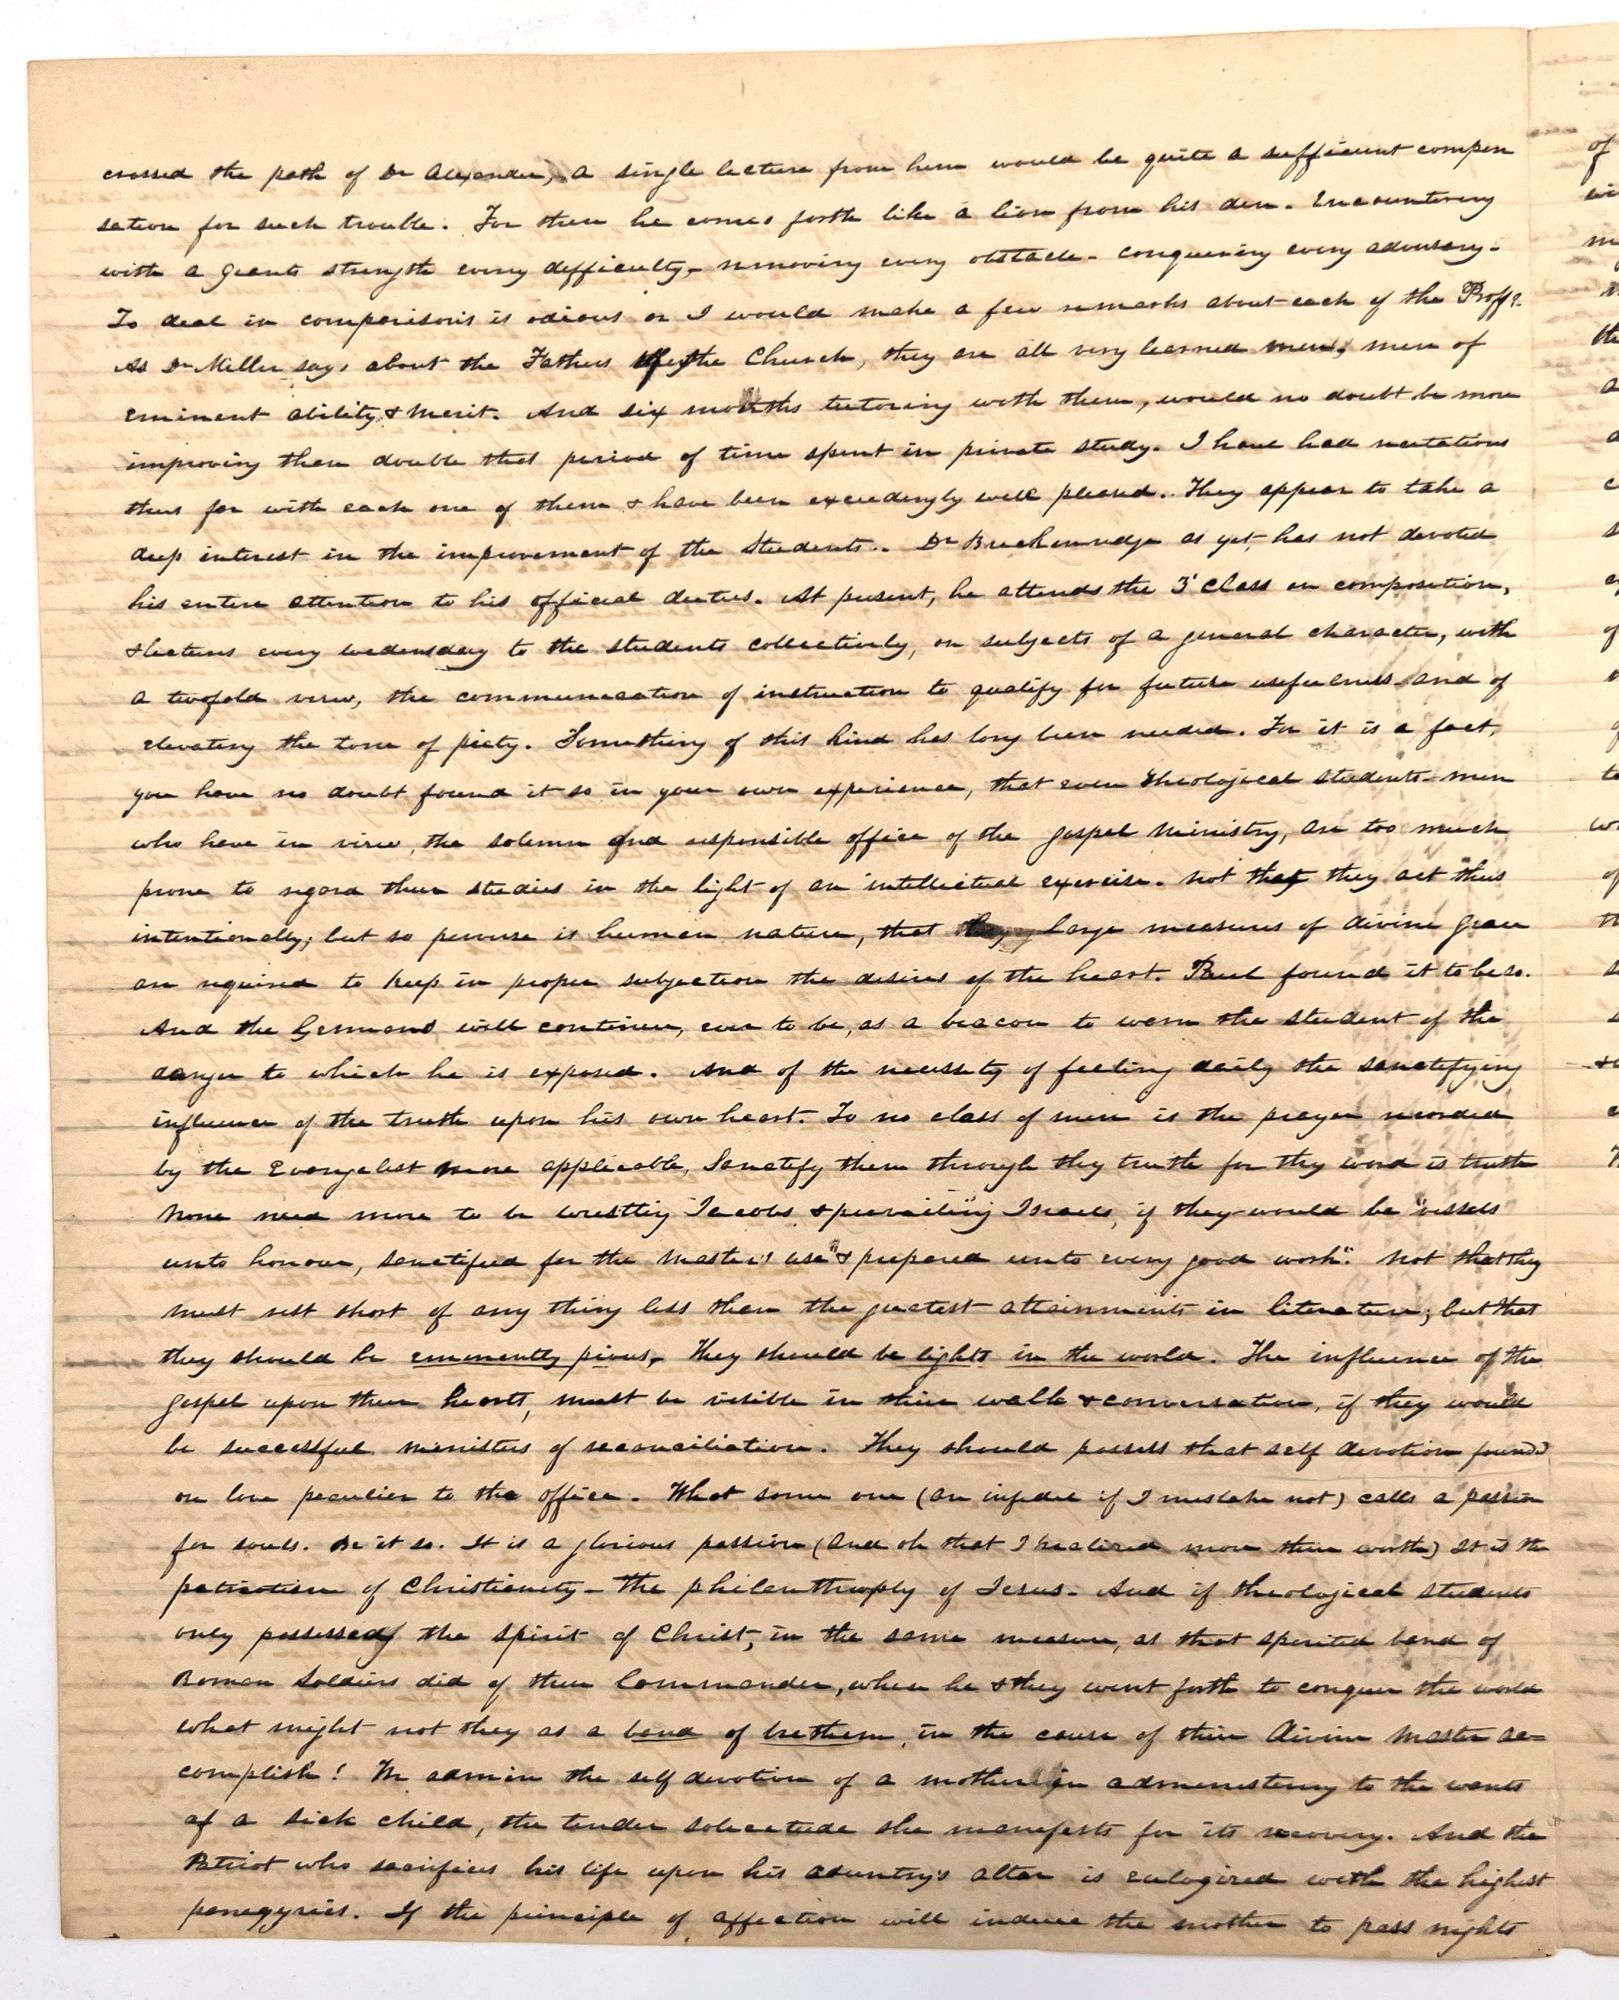 crossed the path of Dr Alexander, a single lecture from him would be quite a sufficient compen
sation for such trouble. For then he comes forth like a lion from his den. Encountering
with a giants strength every difficulty,- removing every obstacle- conquering every adversary-
To deal in comparisons is odious or I would make a few remarks about each of the Profs.
As Dr Miller says about the Fathers of the Church, they are all very learned men, men of
eminent ability & merit. And six months tutoring with them, would no doubt be more
improving than double that period of time spent in private study. I have had recitations
thus far with each one of them & have been exceedingly well pleased. They appear to take a
deep interest in the improvement of the Students. Dr Breckenridge as yet, has not devoted
his entire attention to his official duties. At present, he attends the 3d Class on composition,
& lectures every wedensday to the students collectively, on subjects of a general character, with
a twofold view, the communication of instruction to qualify for future usefulness and of
elevating the tone of piety. Something of this kind has long been needed. For it is a fact,
you have no doubt found it so in your own experience, that even theological students- men
who have in view, the solemn and responsible office of the gospel ministry, are too much
prone to regard their studies in the light of an intellectual exercise. Not that they act thus
intentionally; but so perverse is human nature, that large measures of divine grace
are required to keep in proper subjection the desires of the heart. Paul found it to be so.
And the Germans will continue, ever to be, as a beacon to warn the student of the
danger to which he is exposed. And of the necessity of feeling daily the sanctifying
influence of the truth upon his own heart. To no class of men is the prayer recorded
by the Evangelist more applicable, Sanctify them through thy truth for thy word is truth
None need more to be wrestling Jacobs & prevailing Israels, if they would be "vessels
unto honour, sanctified for the Master's use" & prepared unto every good work". Not that they
must rest short of any thing less than the greatest attainments in literature; but that
they should be eminently pious, They should be lights in the world. The influence of the
gospel upon their hearts, must be visible in their walk & conversation, if they would
be successful ministers of reconciliation. They should possess that self devotion founded
on love peculiar to the office. What some one (an infidel if I mistake not) calls a passion
for souls. Be it so. It is a glorious passion (And oh that I realized more their worth) It is the
patriotism of Christianity- The philanthrophy of Jesus- And if theological students
only possessed the spirit of Christ, in the same measure, as that spirited band of
Roman Soldiers did of their Commander, when he & they went forth to conquer the world
what might not they as a band of brethern, in the cause of their Divine Master ac-
complish! We admire the self devotion of a mother in administering to the wants
of a sick child, the tender solicitude she manifests for its recovery. And the
Patriot who sacrifices his life upon his country's altar is eulogized with the highest
panegyrics. If the principle of affection will induce the mother to pass nights